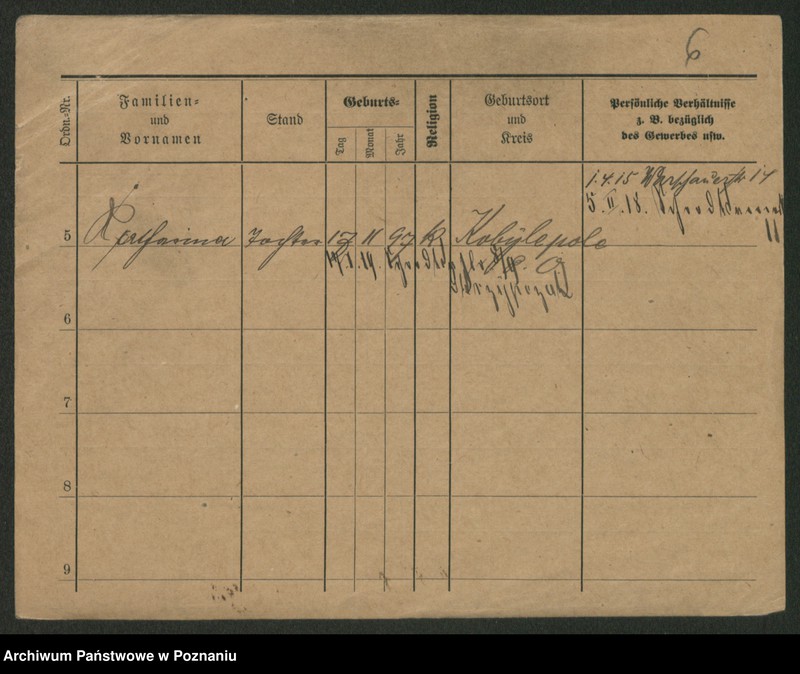 6
Ordn.-Nr.
Familien-
und
Vornamen
Stand
Geburts-
Tag
Monat
Jahr
Religion
Geburtsort
und
Kreis
Persönliche Verhältnisse
z. B. bezüglich
des Gewerbes usw.
1.4.15 Warschauerstr. 17
5. II. 18.
11
5 Katharina Tochter 17 11 97 k. Kobylepole
6
7
8
9
Archiwum Państwowe w Poznaniu